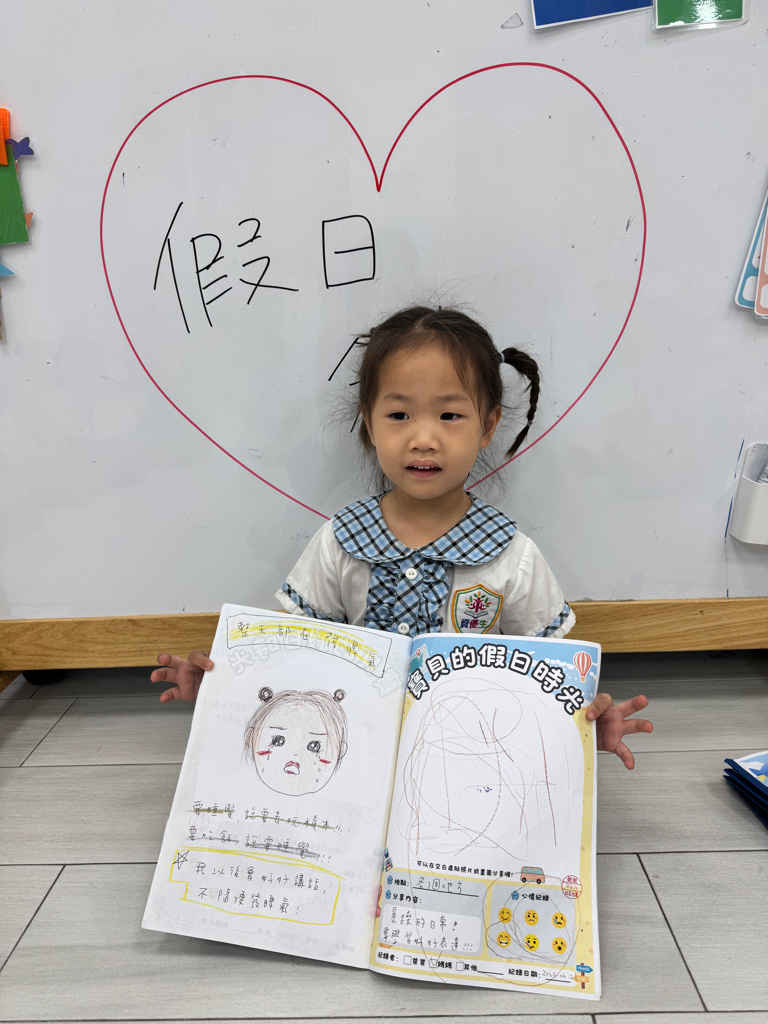 假日
資優生
整天都在發脾氣
要睡覺,說要去玩積木!!!
要吃飯,說要睡覺!!!
我以後會好好講話,
不隨便發脾氣!
寶貝的假日時光
可以在空白處貼照片或畫圖分享喔!
地點:各個地方
分享內容:
的日常!
要學習好好表達!!!
心情紀錄
紀錄者:□爸爸 □媽媽 □其他
紀錄日期: